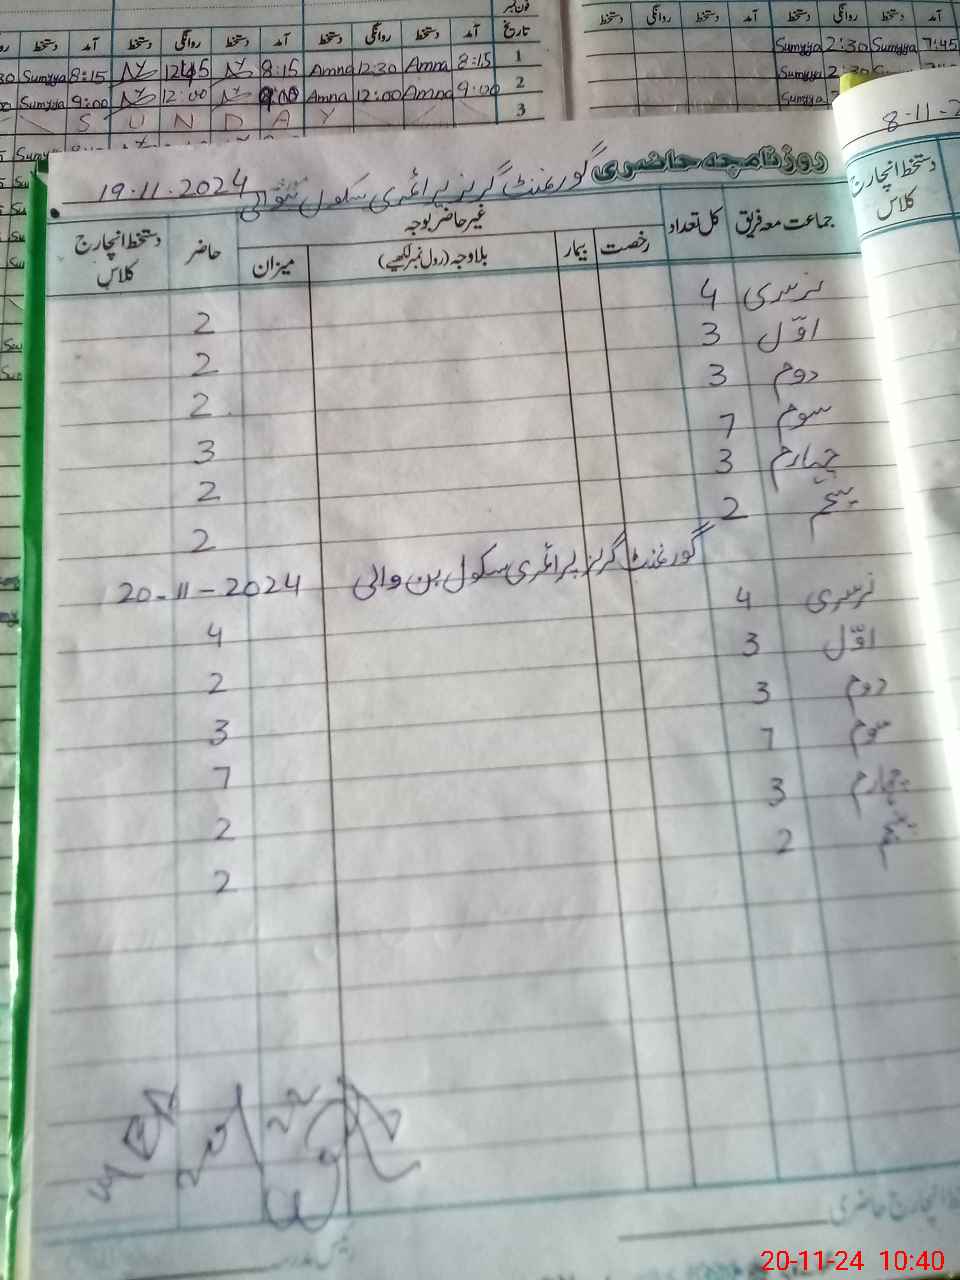 فون نمبر
تاریخ آمد دستخط روانگی دستخط آمد دستخط روانگی دستخط آمد دستخط
1 8:15 Amna 12:30 Amna 8:15 12:45 8:15 Sumyya
2 9:00 Amna 12:00 Amna 9:00 12:00 9:00 Sumyya
3 S U N D A Y
آمد دستخط روانگی دستخط آمد دستخط روانگی دستخط
7:45 Sumyya 2:30 Sumyya
2:30 Sumyya
Sumyya
8-11-2
دستخط انچارج
کلاس
روزنامچہ حاضری گورنمنٹ گرلز پرائمری سکول
19.11.2024
جماعت معہ فریق کل تعداد غیر حاضر بوجہ حاضر دستخط انچارج کلاس
رخصت بیمار بلاوجہ (رول نمبر لکھیے) میزان
نرسری 4 2
اوّل 3 2
دوم 3 2
سوم 7 3
چہارم 3 2
پنجم 2 2
گورنمنٹ گرلز پرائمری سکول بن والی 20-11-2024
نرسری 4 4
اوّل 3 2
دوم 3 3
سوم 7 7
چہارم 3 2
پنجم 2 2
انچارج حاضری
20-11-24 10:40